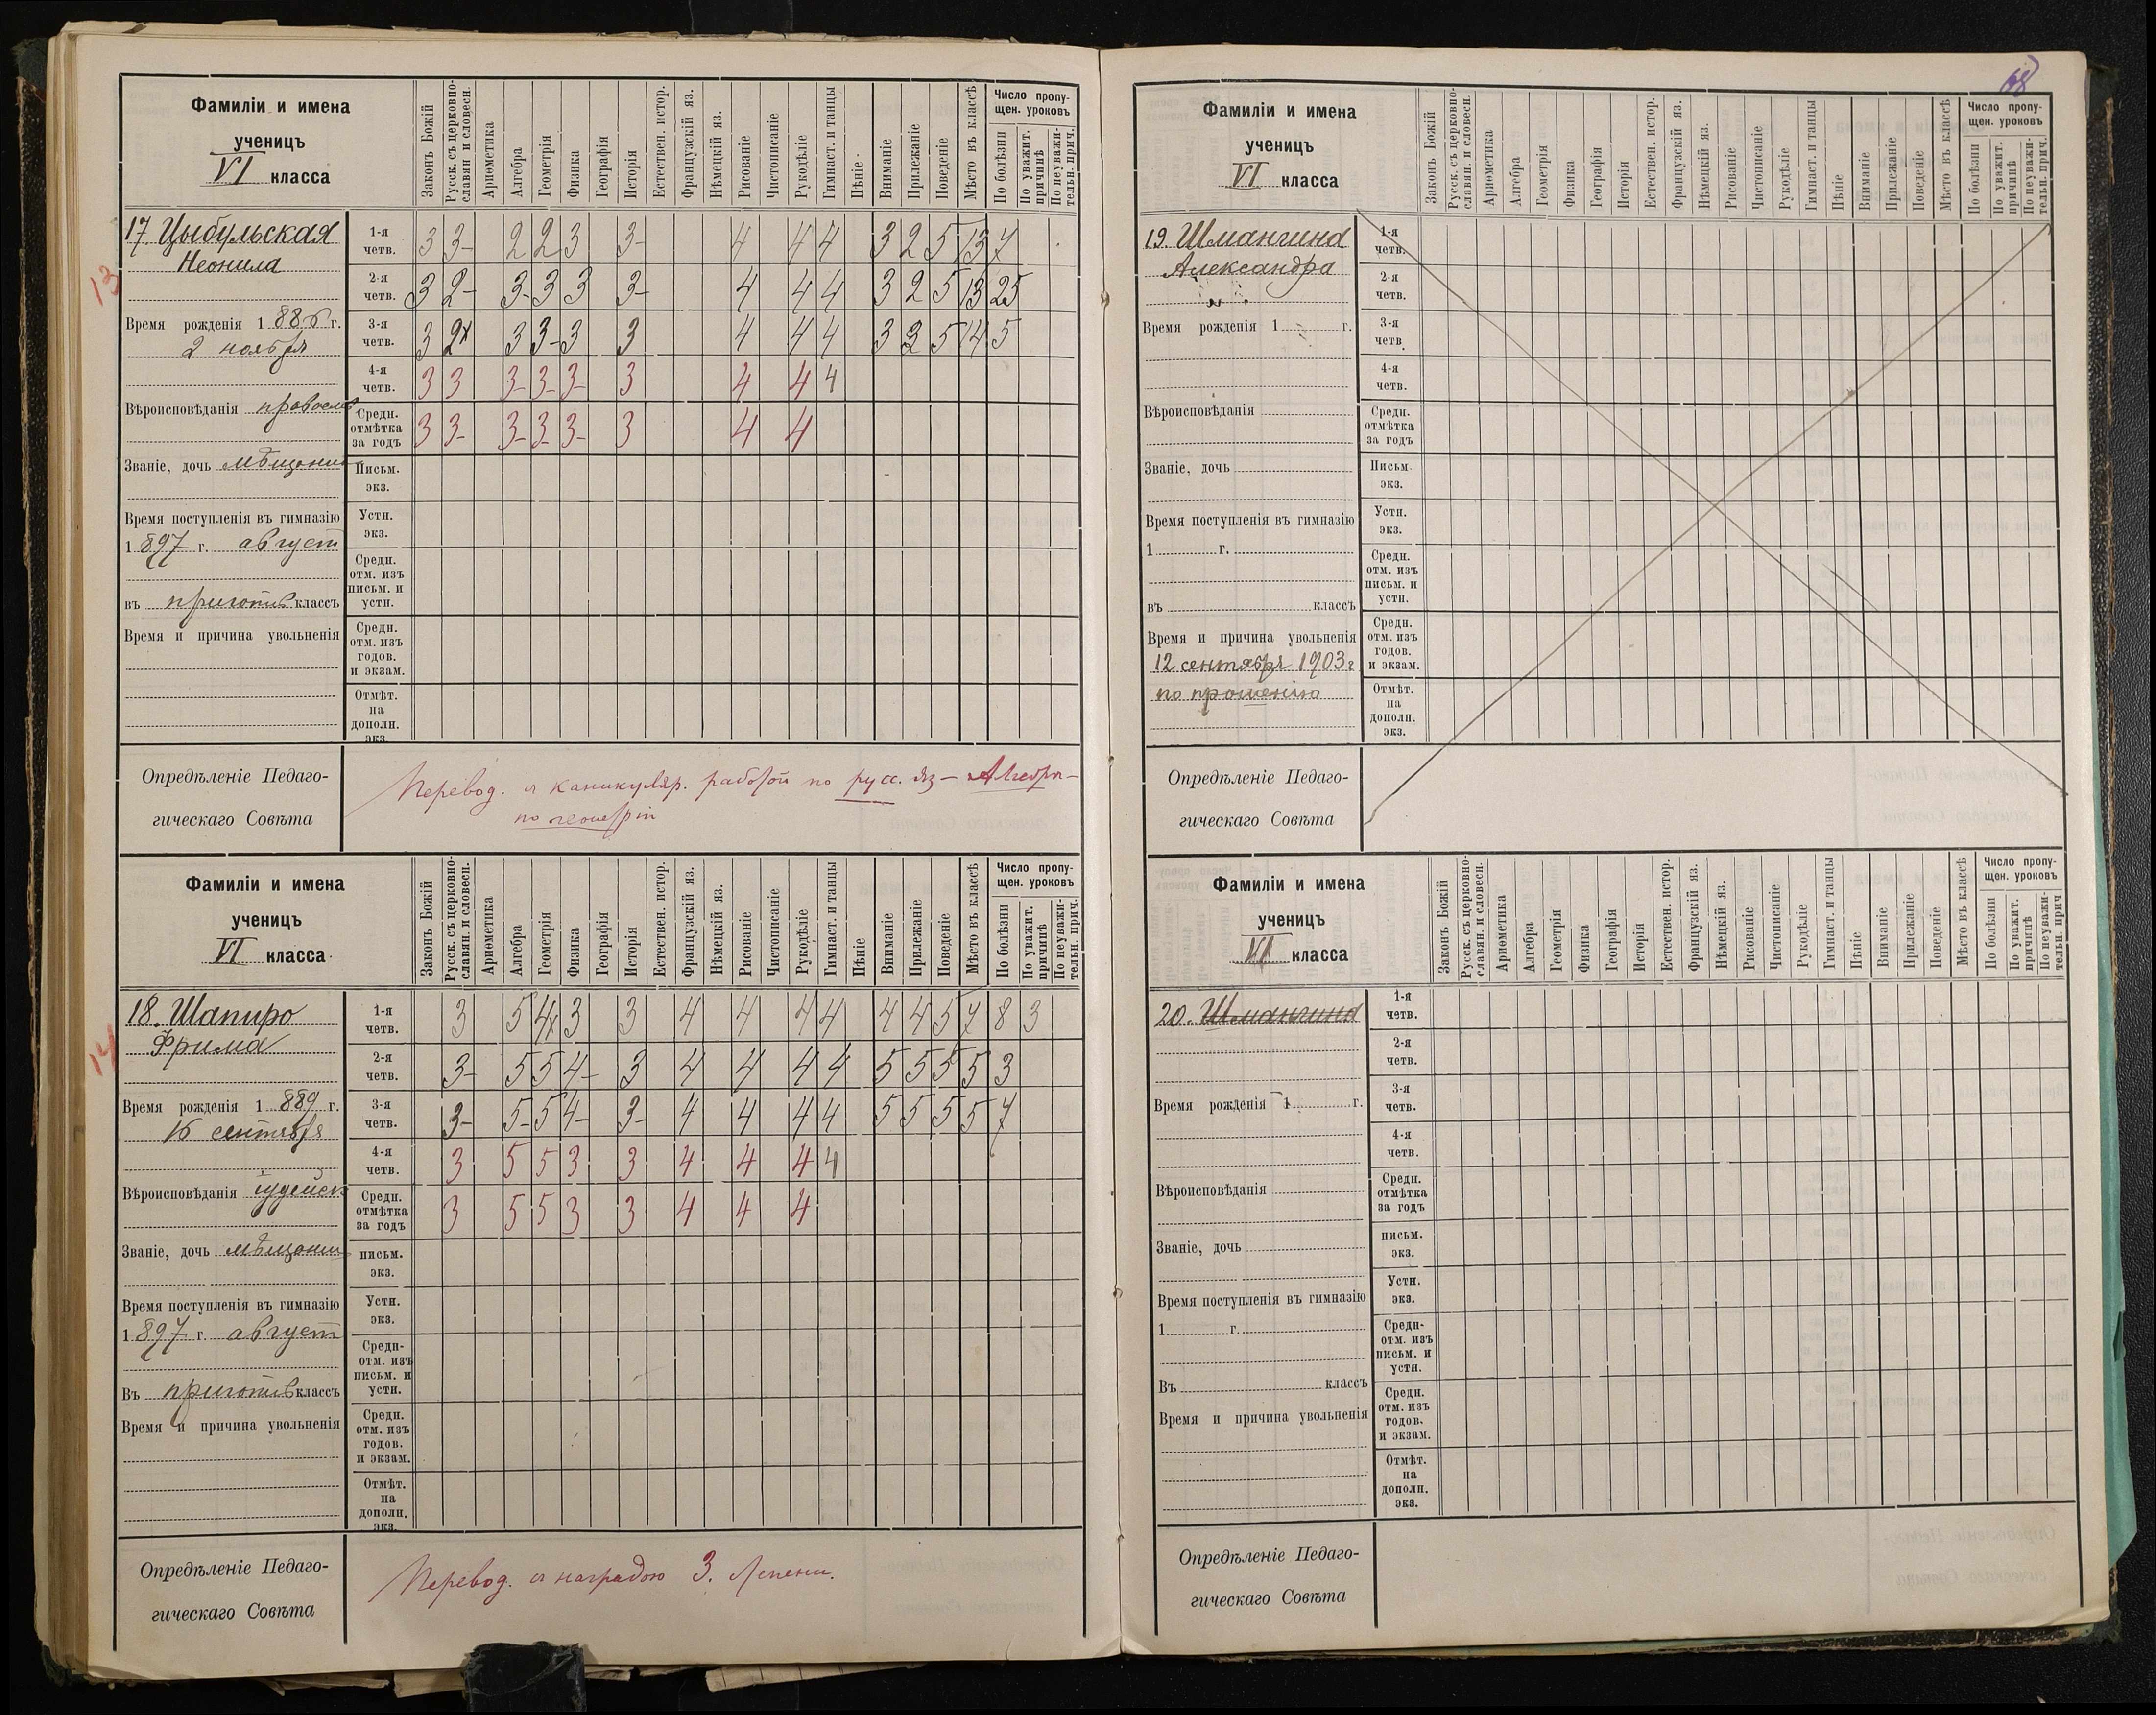 68
Фамиліи и имена
ученицъ
VI класса
Законъ Божій
Русск. съ церковно-
славян. и словесн.
Ариѳметика
Алгебра
Геометрія
Физика
Географія
Исторія
Естествен. истор.
Французскій яз.
Нѣмецкій яз.
Рисованіе
Чистописаніе
Рукодѣліе
Гимнаст. и танцы
Пѣніе
Вниманіе
Прилежаніе
Поведеніе
Мѣсто въ классѣ
Число пропу-
щен. уроковъ
По болѣзни
По уважит.
причинѣ
По неуважи-
тельн. прич.
17. Цыбульская
Неонила
13
Время рожденія 1886 г.
2 ноября
Вѣроисповѣданія православ
Званіе, дочь мѣщанин
Время поступленія въ гимназію
1897 г. август
въ приготив классъ
Время и причина увольненія
1-я четв. 3 3- 2 2 3 3- 4 4 4 3 2 5 13 7
2-я четв. 3 2- 3- 3 3 3- 4 4 4 3 2 5 13 25
3-я четв. 3 2х 3 3- 3 3 4 4 4 3 3 5 14 5
4-я четв. 3 3 3- 3- 3- 3 4 4 4
Средн. отмѣтка за годъ 3 3- 3- 3- 3- 3 4 4
Письм. экз.
Устн. экз.
Средн. отм. изъ письм. и устн.
Средн. отм. изъ годов. и экзам.
Отмѣт. на дополн. экз.
Опредѣленіе Педаго-
гическаго Совѣта
Перевод. с каникуляр. работой по русс. яз – Алгебр –
по геометріи
Фамиліи и имена
ученицъ
VI класса
Законъ Божій
Русск. съ церковно-
славян. и словесн.
Ариѳметика
Алгебра
Геометрія
Физика
Географія
Исторія
Естествен. истор.
Французскій яз.
Нѣмецкій яз.
Рисованіе
Чистописаніе
Рукодѣліе
Гимнаст. и танцы
Пѣніе
Вниманіе
Прилежаніе
Поведеніе
Мѣсто въ классѣ
Число пропу-
щен. уроковъ
По болѣзни
По уважит.
причинѣ
По неуважи-
тельн. прич.
18. Шапиро
Фрима
14
Время рожденія 1889 г.
16 сентября
Вѣроисповѣданія іудейск
Званіе, дочь мѣщанин
Время поступленія въ гимназію
1897 г. август
Въ приготив классъ
Время и причина увольненія
1-я четв. 3 5 4х 3 3 4 4 4 4 4 4 5 7 8 3
2-я четв. 3- 5 5 4- 3 4 4 4 4 5 5 5 5 3
3-я четв. 3- 5- 5 4- 3- 4 4 4 4 5 5 5 5 7
4-я четв. 3 5 5 3 3 4 4 4 4
Средн. отмѣтка за годъ 3 5 5 3 3 4 4 4
письм. экз.
Устн. экз.
Средн- отм. изъ письм. и устн.
Средн. отм. изъ годов. и экзам.
Отмѣт. на дополн. экз.
Опредѣленіе Педаго-
гическаго Совѣта
Перевод. с наградою 3. степени.
Фамиліи и имена
ученицъ
VI класса
Законъ Божій
Русск. съ церковно-
славян. и словесн.
Ариѳметика
Алгебра
Геометрія
Физика
Географія
Исторія
Естествен. истор.
Французскій яз.
Нѣмецкій яз.
Рисованіе
Чистописаніе
Рукодѣліе
Гимнаст. и танцы
Пѣніе
Вниманіе
Прилежаніе
Поведеніе
Мѣсто въ классѣ
Число пропу-
щен. уроковъ
По болѣзни
По уважит.
причинѣ
По неуважи-
тельн. прич.
19. Шмангина
Александра
Время рожденія 1 г.
Вѣроисповѣданія
Званіе, дочь
Время поступленія въ гимназію
1 г.
въ классъ
Время и причина увольненія
12 сентября 1903 г
по прошенію
1-я четв.
2-я четв.
3-я четв.
4-я четв.
Средн. отмѣтка за годъ
Письм. экз.
Устн. экз.
Средн. отм. изъ письм. и устн.
Средн. отм. изъ годов. и экзам.
Отмѣт. на дополн. экз.
Опредѣленіе Педаго-
гическаго Совѣта
Фамиліи и имена
ученицъ
VI класса
Законъ Божій
Русск. съ церковно-
славян. и словесн.
Ариѳметика
Алгебра
Геометрія
Физика
Географія
Исторія
Естествен. истор.
Французскій яз.
Нѣмецкій яз.
Рисованіе
Чистописаніе
Рукодѣліе
Гимнаст. и танцы
Пѣніе
Вниманіе
Прилежаніе
Поведеніе
Мѣсто въ классѣ
Число пропу-
щен. уроковъ
По болѣзни
По уважит.
причинѣ
По неуважи-
тельн. прич
20. Шмангина
Время рожденія 1 г.
Вѣроисповѣданія
Званіе, дочь
Время поступленія въ гимназію
1 г.
Въ классъ
Время и причина увольненія
1-я четв.
2-я четв.
3-я четв.
4-я четв.
Средн. отмѣтка за годъ
письм. экз.
Устн. экз.
Средн- отм. изъ письм. и устн.
Средн. отм. изъ годов. и экзам.
Отмѣт. на дополн. экз.
Опредѣленіе Педаго-
гическаго Совѣта